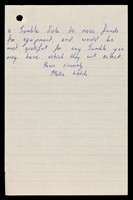 a Jumble Sale to raise funds
for equipment, and would be
most grateful for any Jumble you
may have which they will collect.
Yours sincerely
Mollie